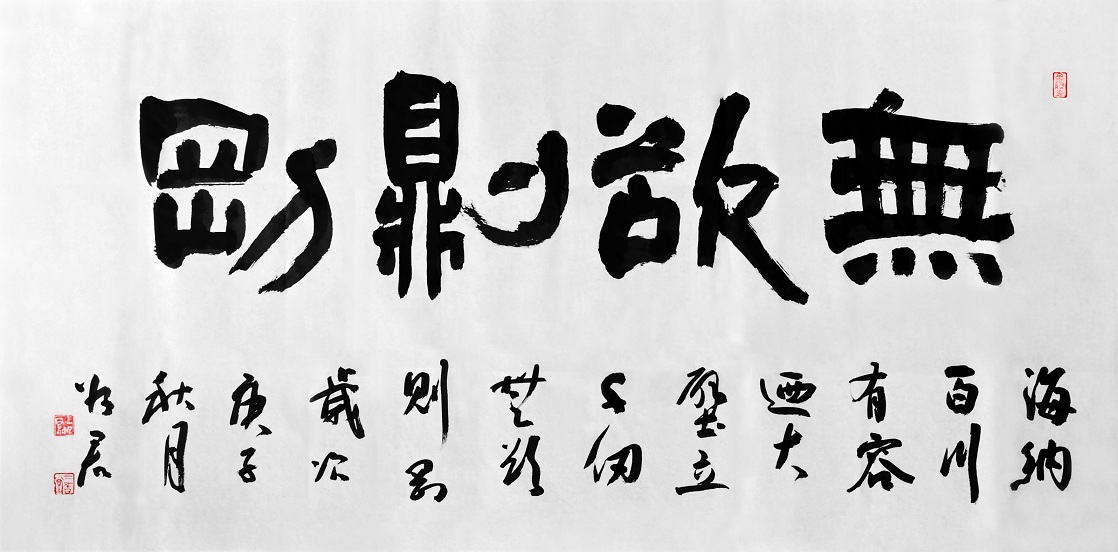 無欲則剛
海納
百川
有容
迺大
壁立
千仞
無欲
則剛
歲次
庚子
秋月
君